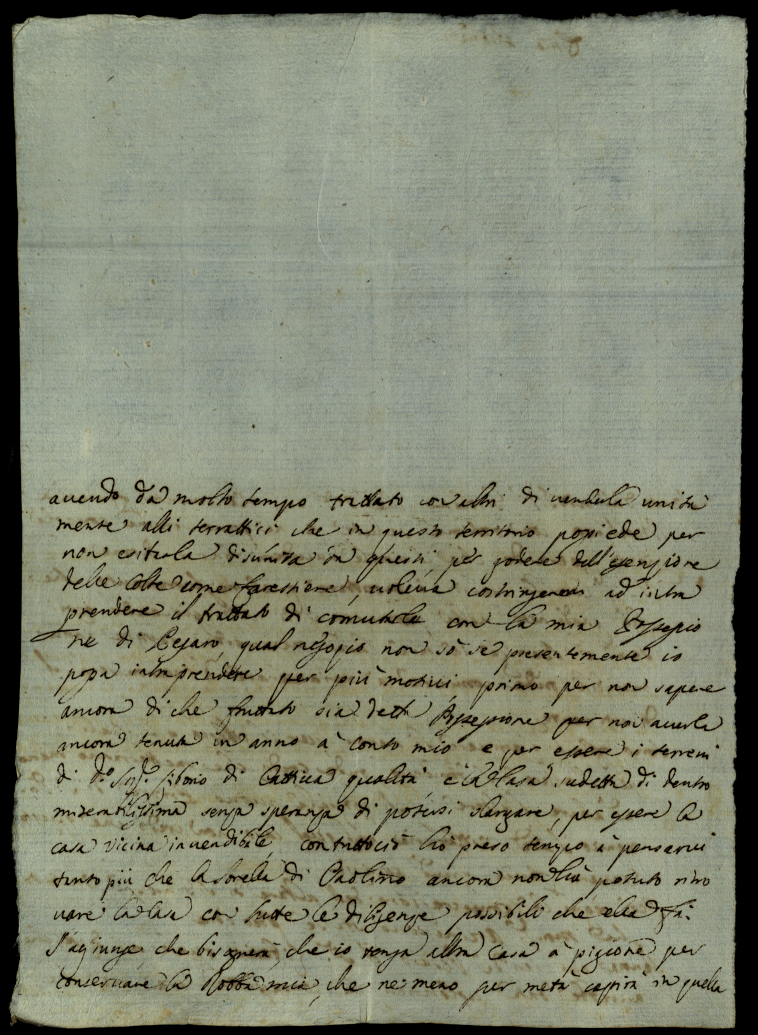 avendo da molto tempo trattato con altri di venderla unita
mente alli terrattici che in questo territorio possiede per
non esitarla disunita da questi per godere dell'esenzione
delle Colte come forestiere, voleva costringermi ad intra
prendere il trattato di comutarle con la mia Possessio
ne di Cesaro, qual negozio non sò se presentemente io
possa intraprendere per più motivi primo per non sapere
ancora di che fruttato sia detta Possessione per non averla
ancora tenuta un anno à conto mio e per essere i terreni
di d.º Sig.r di Cattiva qualità e la Casa sudetta di dentro
miserabilissima senza speranza di potersi slargare, per essere la
casa vicina invendibile, contuttociò hò preso tempo à pensarvi
tanto più che la sorella di Paolino ancora non hà potuto ritro
vare la Casa con tutte le diligenze possibili che ella fà.
S'agiunge che bisognerà che io tenga altra Casa à pigione per
conservare la Robba mia, che ne meno per metà capirà in quella